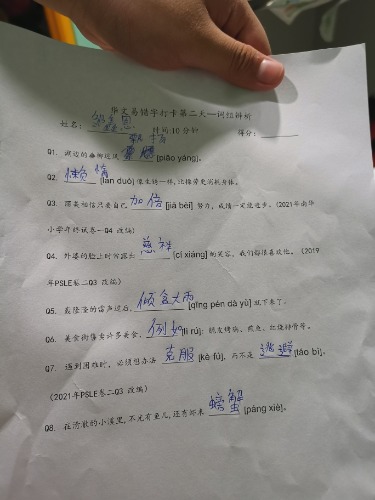 华文易错字打卡第二天—词组辨析
姓名： 时间：10分钟 得分：
Q1. 湖边的垂柳迎风 [piāo yáng]。
Q2. 懒惰 [lǎn duò] 像生锈一样，比操劳更消耗身体。
Q3. 谓美相信只要自己 加倍 [jiā bèi] 努力，成绩一定能进步。（2021年南华
小学年终试卷一Q4 改编）
Q4. 外婆的脸上时常露出 慈祥 [cí xiáng] 的笑容，我们都很喜欢她。（2019
年PSLE卷二Q3 改编）
Q5. 轰隆隆的雷声过后，倾盆大雨 [qīng pén dà yǔ] 就下来了。
Q6. 美食街售卖许多美食，例如 [lì rú]：朋友烤肠、煎鱼、红烧排骨等。
Q7. 遇到困难时，必须想办法 克服 [kè fú]，而不是 逃避 [táo bì]。
（2021年PSLE卷二Q3 改编）
Q8. 在清澈的小溪里，不光有鱼儿，还有虾米 螃蟹 [páng xiè]。